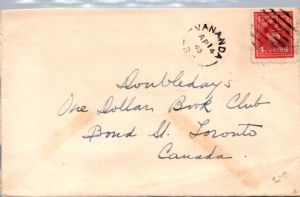 VANANDA
AP 14
45
B.C.
Doubleday's
One Dollar Book Club
Bond St. Toronto
Canada.